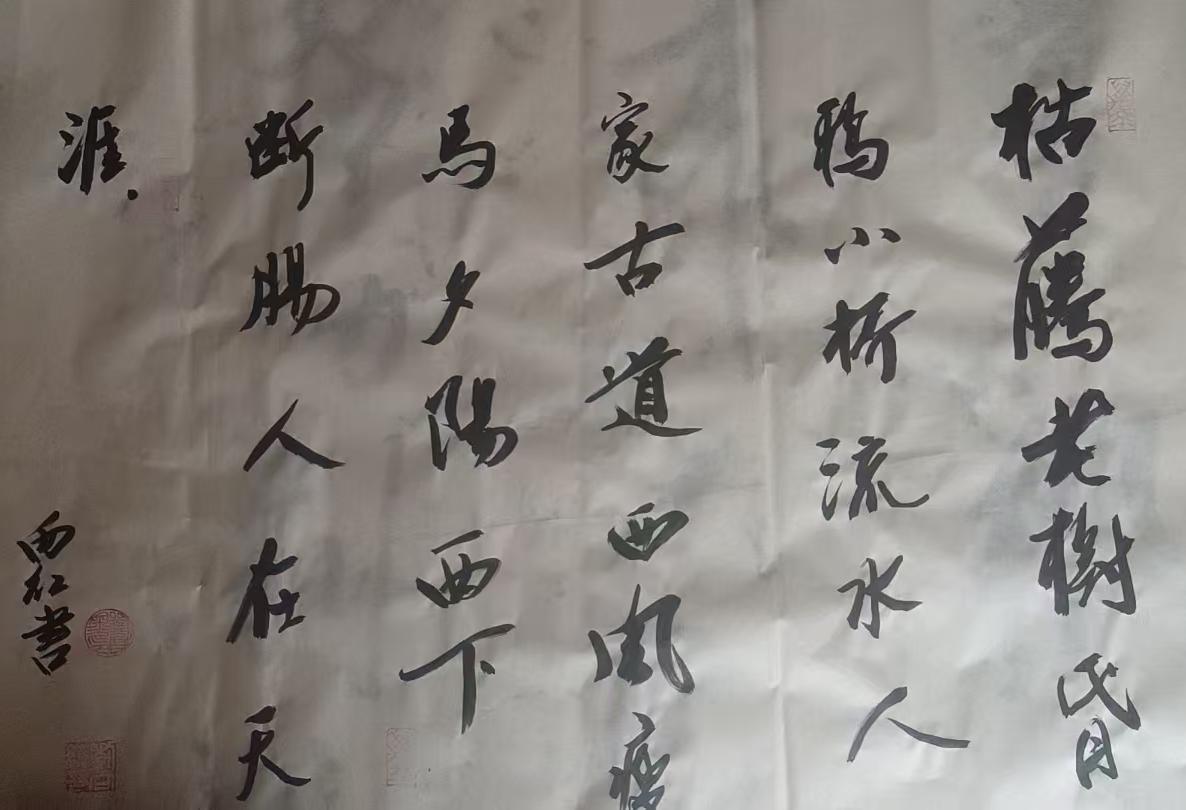 枯藤老樹昏
鴉小桥流水人
家古道西风瘦
馬夕陽西下
断腸人在天
涯.
書